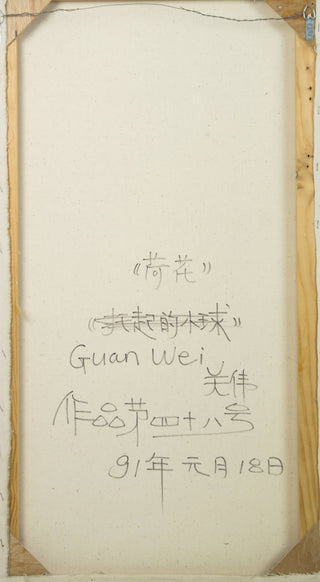 《荷花》
《托起的木球》
Guan Wei
关伟
作品苐四十八号
91年元月18日